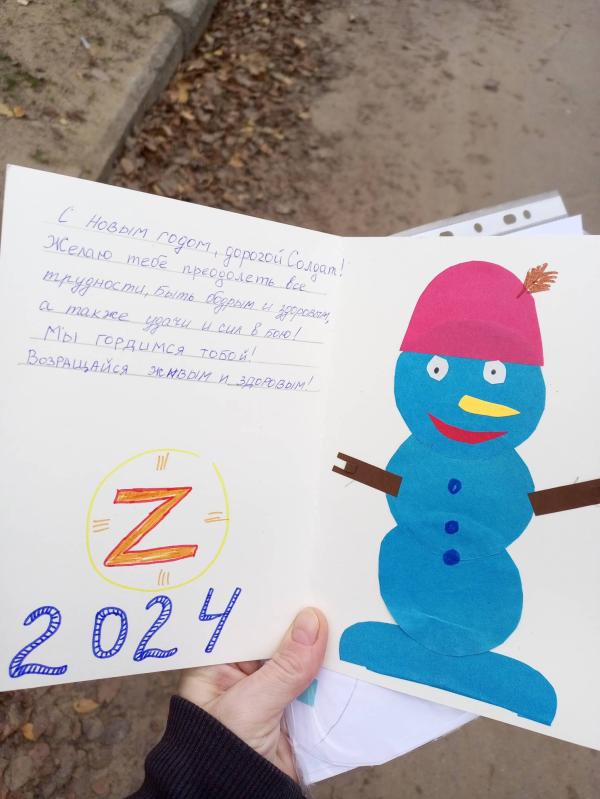 С новым годом, дорогой Солдат!
Желаю тебе преодолеть все
трудности, быть бодрым и здоровым,
а также удачи и сил в бою!
Мы гордимся тобой!
Возращайся живым и здоровым!
Z
2024